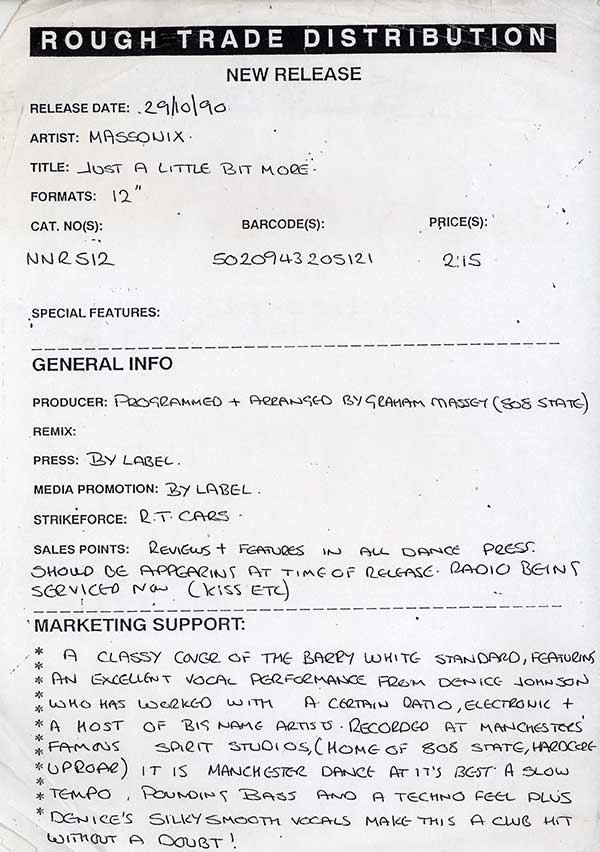 ROUGH TRADE DISTRIBUTION
NEW RELEASE
RELEASE DATE: 29/10/90
ARTIST: MASSONIX.
TITLE: JUST A LITTLE BIT MORE.
FORMATS: 12"
CAT. NO(S): BARCODE(S): PRICE(S):
NNRS12 5020943205121 2.15
SPECIAL FEATURES:
GENERAL INFO
PRODUCER: PROGRAMMED + ARRANGED BY GRAHAM MASSEY (808 STATE)
REMIX:
PRESS: BY LABEL.
MEDIA PROMOTION: BY LABEL.
STRIKEFORCE: R.T. CARS.
SALES POINTS: REVIEWS + FEATURES IN ALL DANCE PRESS.
SHOULD BE APPEARING AT TIME OF RELEASE. RADIO BEING
SERVICED NOW (KISS ETC)
MARKETING SUPPORT:
* A CLASSY COVER OF THE BARRY WHITE STANDARD, FEATURING
* AN EXCELLENT VOCAL PERFORMANCE FROM DENICE JOHNSON
* WHO HAS WORKED WITH A CERTAIN RATIO, ELECTRONIC +
* A HOST OF BIG NAME ARTISTS. RECORDED AT MANCHESTERS'
* FAMOUS SPIRIT STUDIOS, (HOME OF 808 STATE, HARDCORE
* UPROAR) IT IS MANCHESTER DANCE AT IT'S BEST. A SLOW
* TEMPO, POUNDING BASS AND A TECHNO FEEL PLUS
* DENICE'S SILKY SMOOTH VOCALS MAKE THIS A CLUB HIT
WITHOUT A DOUBT!